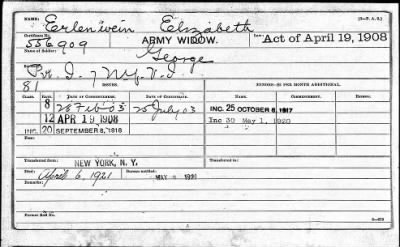 NAME: Erlenwein Elizabeth (3-P.A.2.)
Certificate No.
556909 ARMY WIDOW. Act of April 19, 1908
Name of Soldier: George
Pvt. I, 7 N.Y. V.I.
81 ISSUES. MINORS—$2 PER MONTH ADDITIONAL.
CLASS. RATE. DATE OF COMMENCEMENT. DATE OF CERTIFICATE.
8 28 Feb 03 25 July 03 INC. 25 OCTOBER 6, 1917
12 APR 19 1908 Inc 30 May 1, 1920
INC. 20 SEPTEMBER 8, 1916
Transferred from: NEW YORK, N. Y.
Died: April 6, 1921 Bureau notified: MAY 1921
Remarks:
Former Roll No.